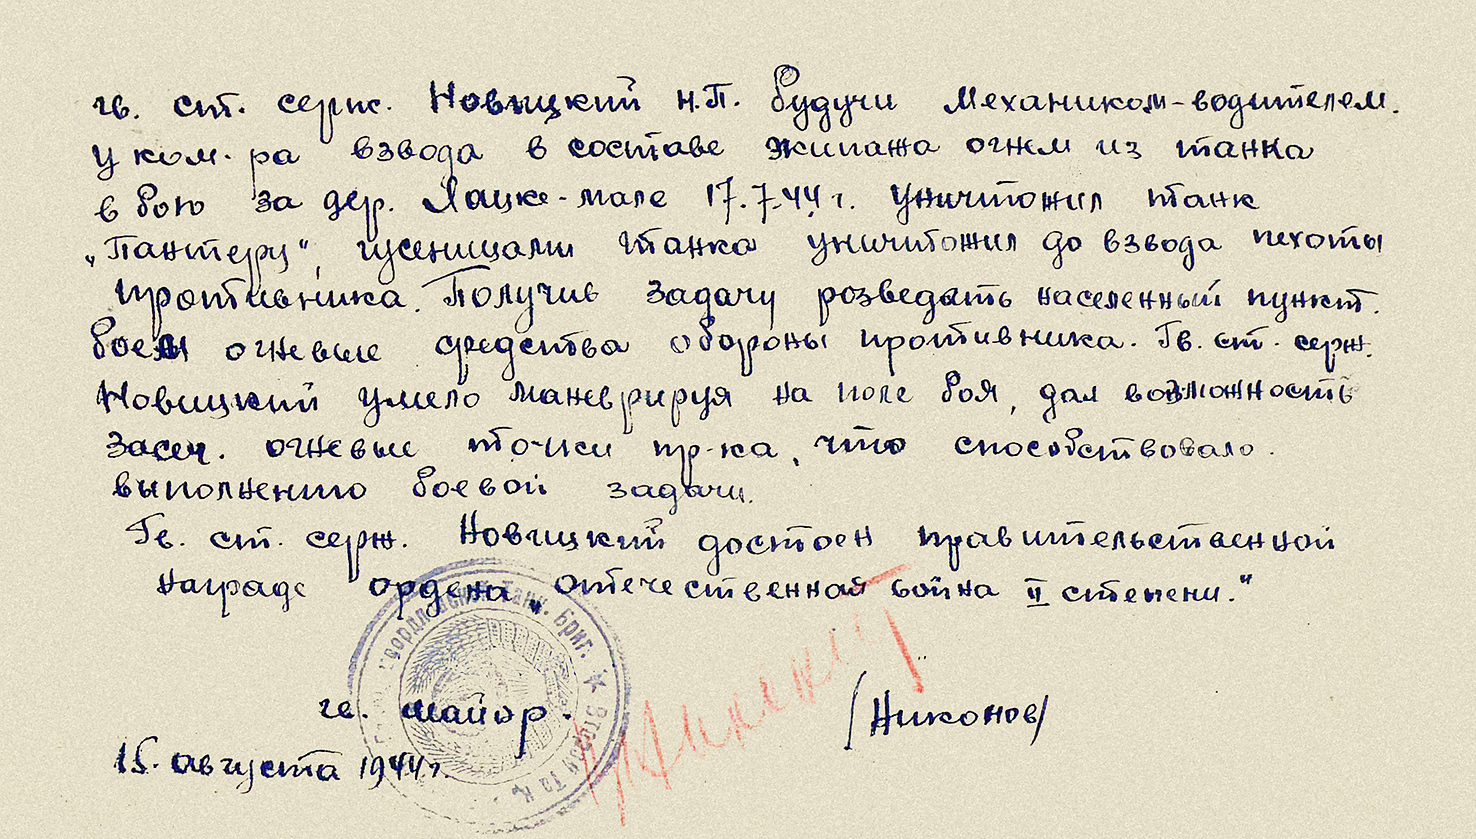 гв. ст. серж. Новицкий Н.П. будучи механиком-водителем.
у ком-ра взвода в составе экипажа огнем из танка
в бою за дер. Яцке-мале 17.7.44 г. уничтожил танк
„Пантеру“, гусеницами танка уничтожил до взвода пехоты
противника. Получив задачу розведать населенный пункт.
боем огневые средства обороны противника. Гв. ст. серж.
Новицкий умело маневрируя на поле боя, дал возможность
засеч. огневые точки пр-ка, что способствовало.
выполнению боевой задачи.
Гв. ст. серж. Новицкий достоен правительственной
награде ордена „Отечественная война II степени."
гв. майор. (Никонов)
15. августа 1944 г.
Танк. Бриг.